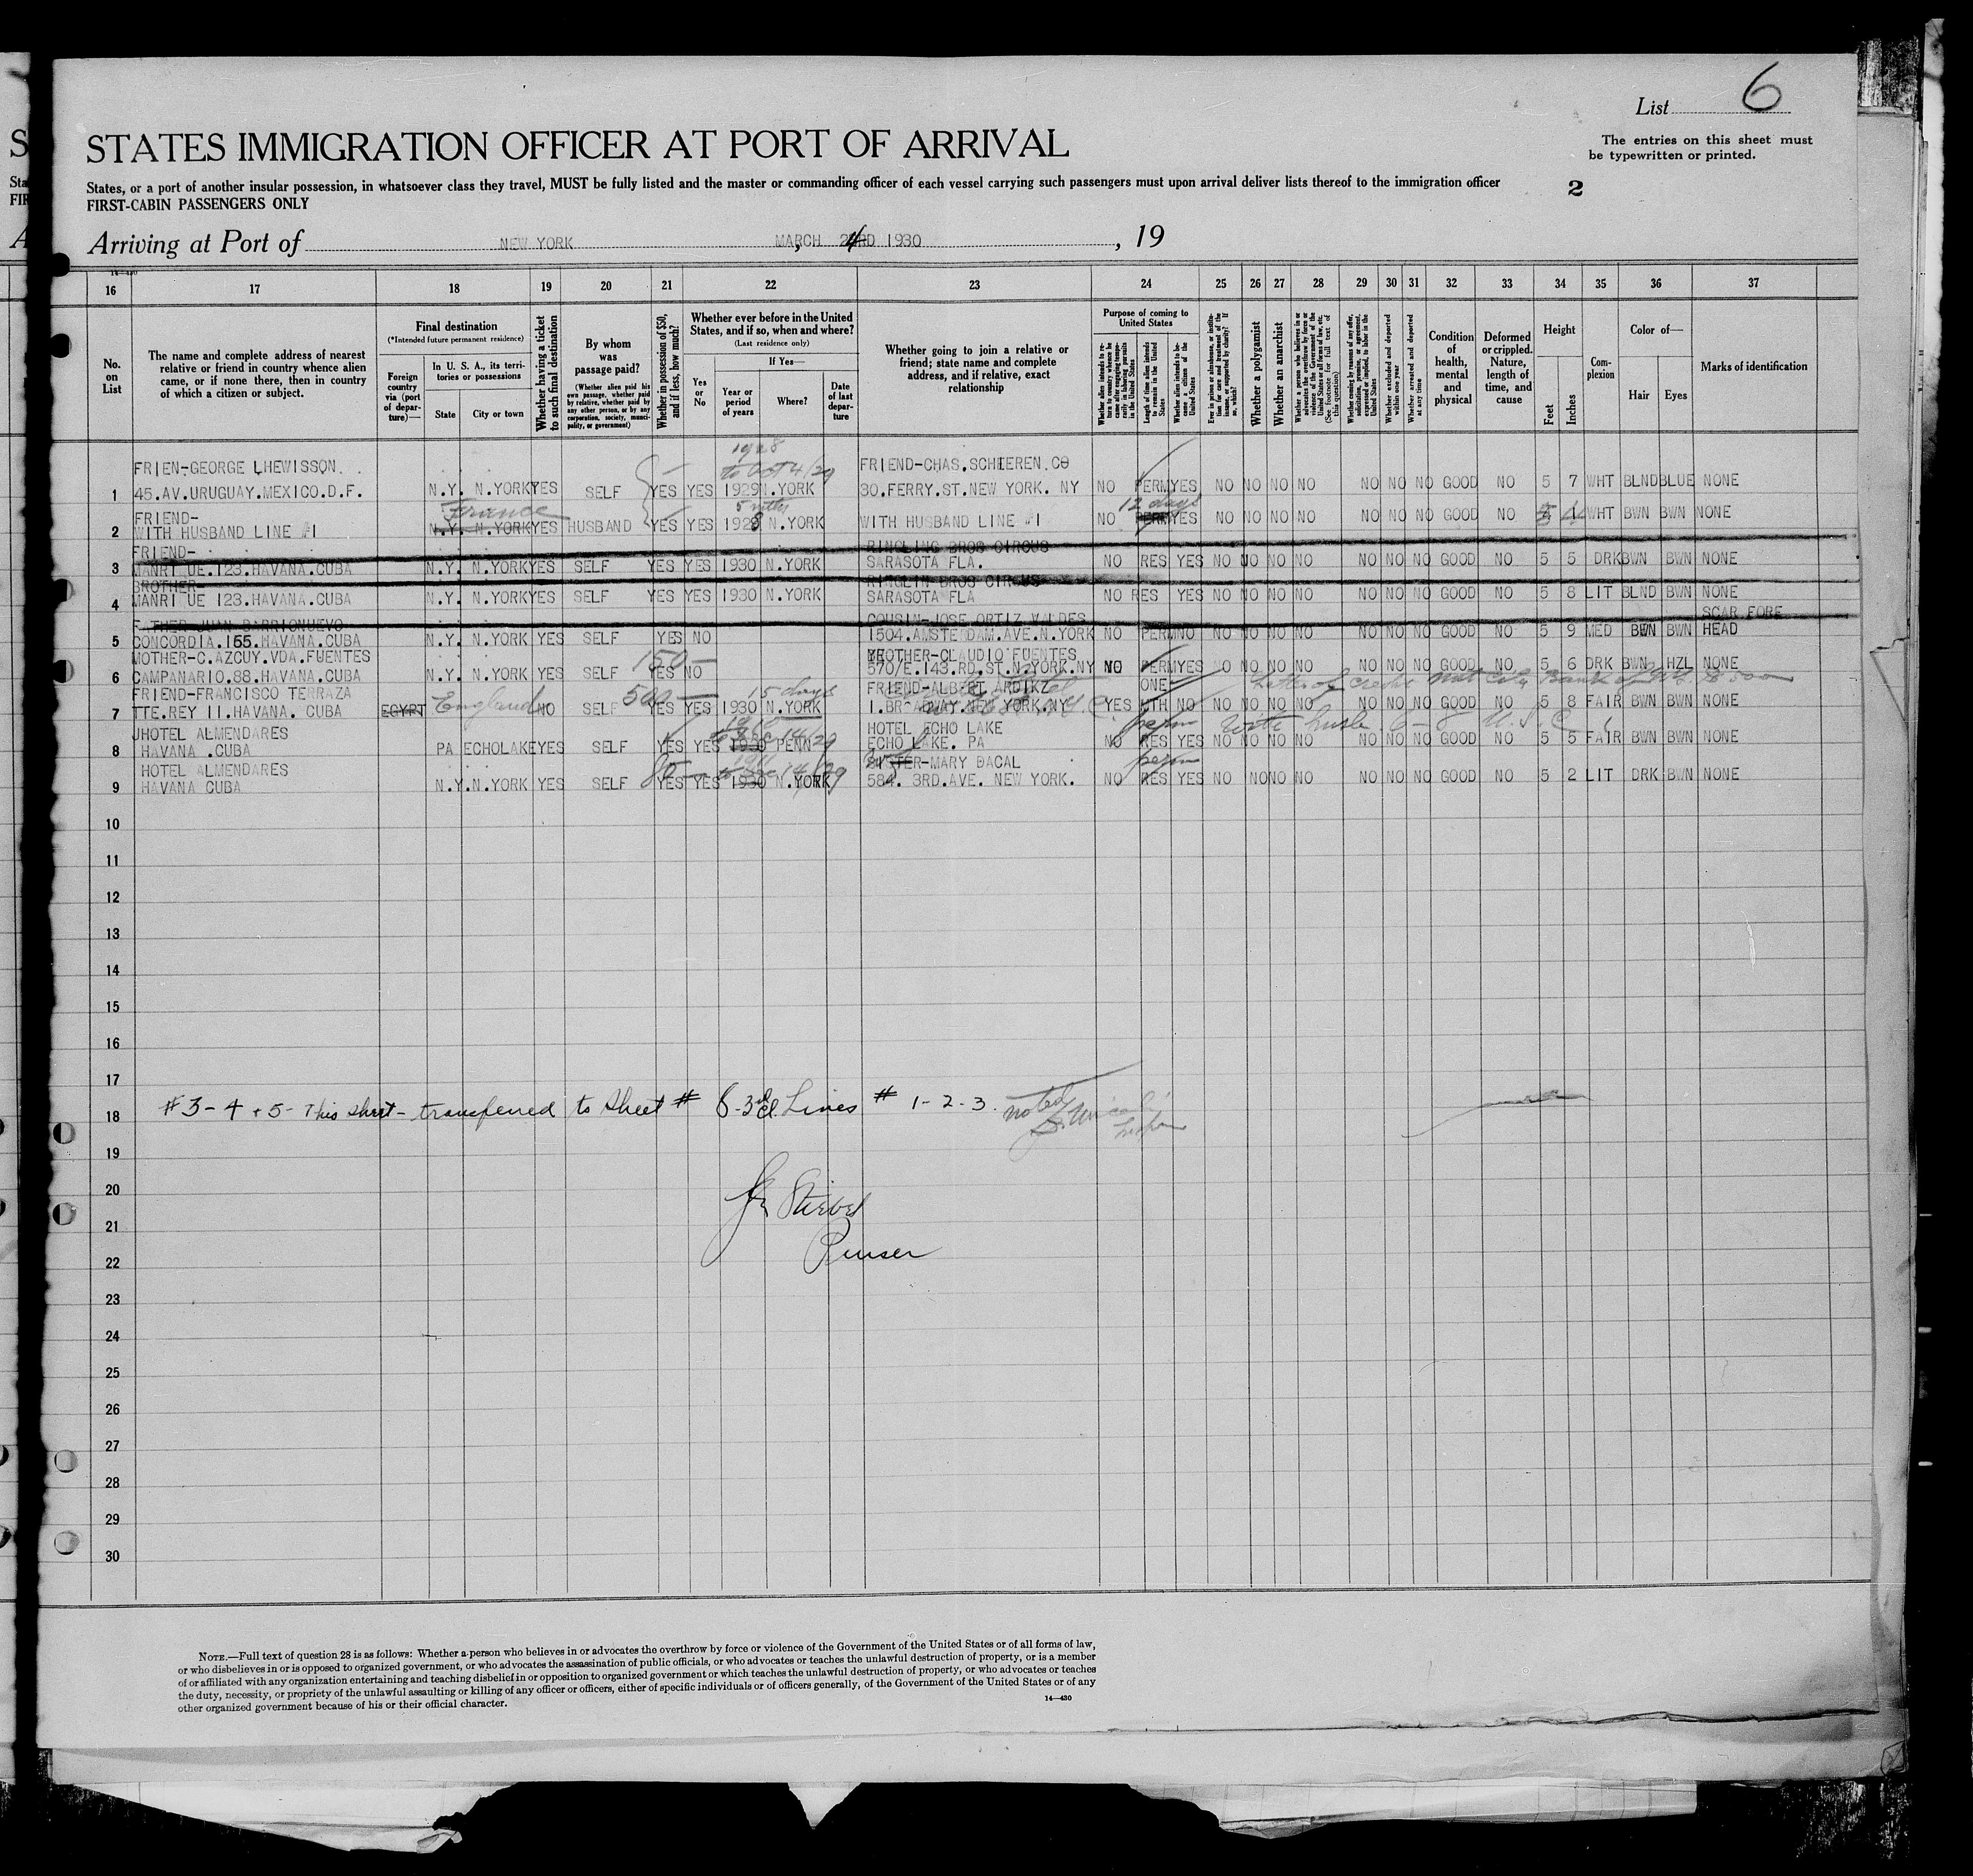 List 6
The entries on this sheet must
be typewritten or printed.
STATES IMMIGRATION OFFICER AT PORT OF ARRIVAL
States, or a port of another insular possession, in whatsoever class they travel, MUST be fully listed and the master or commanding officer of each vessel carrying such passengers must upon arrival deliver lists thereof to the immigration officer
2
FIRST-CABIN PASSENGERS ONLY
Arriving at Port of NEW YORK MARCH 4 1930, 19
16 17 18 19 20 21 22 23 24 25 26 27 28 29 30 31 32 33 34 35 36 37
No. on List
The name and complete address of nearest relative or friend in country whence alien came, or if none there, then in country of which a citizen or subject.
Final destination
(*Intended future permanent residence)
Foreign country via (port of departure)—
In U. S. A., its territories or possessions
State
City or town
Whether having a ticket to such final destination
By whom was passage paid?
(Whether alien paid his own passage, whether paid by relative, whether paid by any other person, or by any corporation, society, municipality, or government)
Whether in possession of $50, and if less, how much?
Whether ever before in the United States, and if so, when and where?
(Last residence only)
Yes or No
If Yes—
Year or period of years
Where?
Date of last departure
Whether going to join a relative or friend; state name and complete address, and if relative, exact relationship
Purpose of coming to United States
Length of time alien intends to remain in the United States
Whether alien intends to become a citizen of the United States
Whether a polygamist
Whether an anarchist
Whether arrested and deported at any time
Condition of health, mental and physical
Deformed or crippled. Nature, length of time, and cause
Height
Feet
Inches
Complexion
Color of—
Hair
Eyes
Marks of identification
1928
FRIEN-GEORGE LHEWISSON. to Oct 4/29 FRIEND-CHAS.SCHIEREN.CO
1 45.AV.URUGUAY.MEXICO.D.F. N.Y. N.YORK YES SELF YES YES 1929 N.YORK 30.FERRY.ST.NEW YORK. NY NO PERM YES NO NO NO NO NO NO NO GOOD NO 5 7 WHT BLND BLUE NONE
FRIEND- France 5 mths 12 days
2 WITH HUSBAND LINE #1 N.Y. N.YORK YES HUSBAND YES YES 1928 N.YORK WITH HUSBAND LINE #1 NO YES NO NO NO NO NO NO NO GOOD NO 5 4 WHT BWN BWN NONE
FRIEND- RINGLING BROS CIRCUS
3 MANRI UE.123.HAVANA.CUBA N.Y. N.YORK YES SELF YES YES 1930 N.YORK SARASOTA FLA. NO RES YES NO NO NO NO NO NO NO GOOD NO 5 5 DRK BWN BWN NONE
BROTHER- RINGLIN BROS CIRCUS
4 MANRI UE 123.HAVANA.CUBA N.Y. N.YORK YES SELF YES YES 1930 N.YORK SARASOTA FLA NO RES YES NO NO NO NO NO NO NO GOOD NO 5 8 LIT BLND BWN NONE
FATHER JUAN BARRIONUEVO COUSIN-JOSE ORTIZ VALDES SCAR FORE
5 CONCORDIA.155.HAVANA.CUBA N.Y. N.YORK YES SELF YES NO 1504.AMSTERDAM.AVE.N.YORK NO PERM NO NO NO NO NO NO NO NO GOOD NO 5 9 MED BWN BWN HEAD
MOTHER-C.AZCUY.VDA.FUENTES 150— BROTHER-CLAUDIO FUENTES
6 CAMPANARIO.88.HAVANA.CUBA N.Y. N.YORK YES SELF YES NO 570/E.143.RD.ST.N.YORK.NY NO PERM YES NO NO NO NO NO NO NO GOOD NO 5 6 DRK BWN HZL NONE
FRIEND-FRANCISCO TERRAZA 500— 15 days FRIEND-ALBERT ARDIKZ ONE Letter of credit Nat City Bank of N.Y.
7 TTE.REY 11.HAVANA. CUBA EGYPT England NO SELF YES YES 1930 N.YORK 1.BROADWAY.NEW YORK.NY YES MTH NO NO NO NO NO NO NO NO GOOD NO 5 8 FAIR BWN BWN NONE
JHOTEL ALMENDARES HOTEL ECHO LAKE With husb 6-8 U.S.C.
8 HAVANA .CUBA PA ECHOLAKE YES SELF YES YES 1930 PENN ECHO LAKE. PA NO RES YES NO NO NO NO NO NO NO GOOD NO 5 5 FAIR BWN BWN NONE
HOTEL ALMENDARES SISTER-MARY DACAL
9 HAVANA CUBA N.Y. N.YORK YES SELF YES YES 1930 N.YORK 584. 3RD.AVE. NEW YORK. NO RES YES NO NO NO NO NO NO NO GOOD NO 5 2 LIT DRK BWN NONE
10
11
12
13
14
15
16
17
#3-4+5- This sheet- transferred to sheet # 8-3rd cl. Lines # 1-2-3. noted
18
19
20
Stiebel
21
Purser
22
23
24
25
26
27
28
29
30
NOTE.—Full text of question 28 is as follows: Whether a person who believes in or advocates the overthrow by force or violence of the Government of the United States or of all forms of law,
or who disbelieves in or is opposed to organized government, or who advocates the assassination of public officials, or who advocates or teaches the unlawful destruction of property, or is a member
of or affiliated with any organization entertaining and teaching disbelief in or opposition to organized government or which teaches the unlawful destruction of property, or who advocates or teaches
the duty, necessity, or propriety of the unlawful assaulting or killing of any officer or officers, either of specific individuals or of officers generally, of the Government of the United States or of any
other organized government because of his or their official character.
14—430